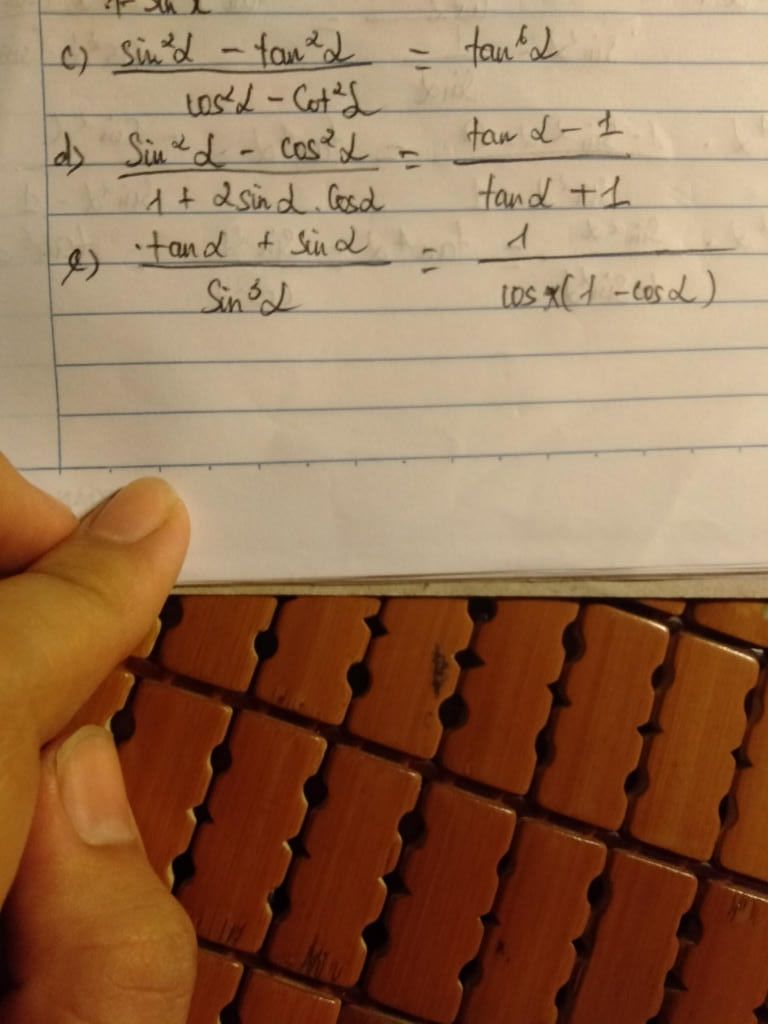 c) (sin²α − tan²α)/(cos²α − Cot²α) = tan⁶α
d) (Sin²α − cos²α)/(1 + 2sinα.Cosα) = (tanα − 1)/(tanα + 1)
e) (tanα + sinα)/(Sin³α) = 1/(cosx(1 − cosα))